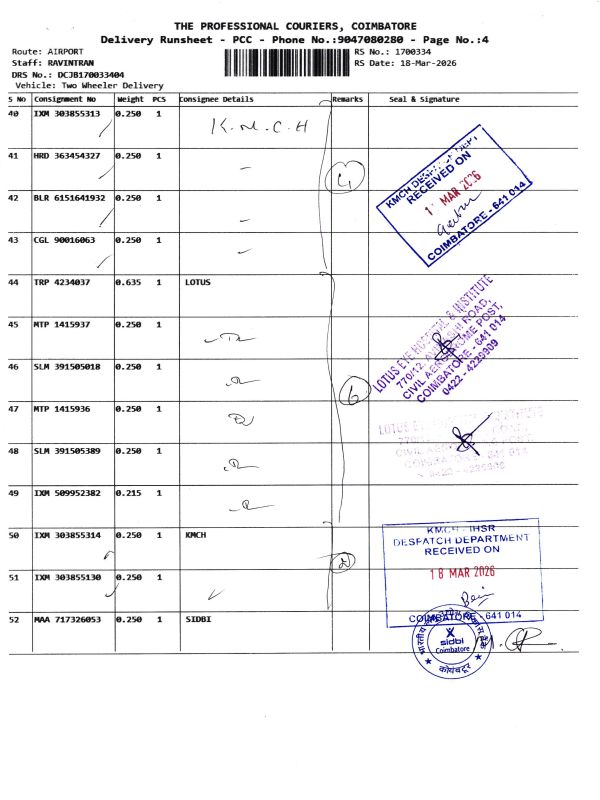 THE PROFESSIONAL COURIERS, COIMBATORE
Delivery Runsheet - PCC - Phone No.:9047080280 - Page No.:4
Route: AIRPORT
RS No.: 1700334
Staff: RAVINTRAN
RS Date: 18-Mar-2026
DRS No.: DCJB170033404
Vehicle: Two Wheeler Delivery
S No Consignment No Weight PCS Consignee Details Remarks Seal & Signature
40 IXM 303855313 0.250 1 K.M.C.H
41 HRD 363454327 0.250 1
42 BLR 6151641932 0.250 1
43 CGL 90016063 0.250 1
4
KMCH DESPATCH DEPT
RECEIVED ON
MAR 2026
COIMBATORE - 641 014
44 TRP 4234037 0.635 1 LOTUS
45 MTP 1415937 0.250 1
46 SLM 391505018 0.250 1
47 MTP 1415936 0.250 1
48 SLM 391505389 0.250 1
49 IXM 509952382 0.215 1
6
LOTUS EYE HOSPITAL & INSTITUTE
770/12, AVINASHI ROAD,
CIVIL AERODROME POST,
COIMBATORE - 641 014
0422 - 4229909
50 IXM 303855314 0.250 1 KMCH
51 IXM 303855130 0.250 1
2
KMCH - IHSR
DESPATCH DEPARTMENT
RECEIVED ON
18 MAR 2026
COIMBATORE - 641 014
52 MAA 717326053 0.250 1 SIDBI
sidbi
Coimbatore
कोयंबटूर